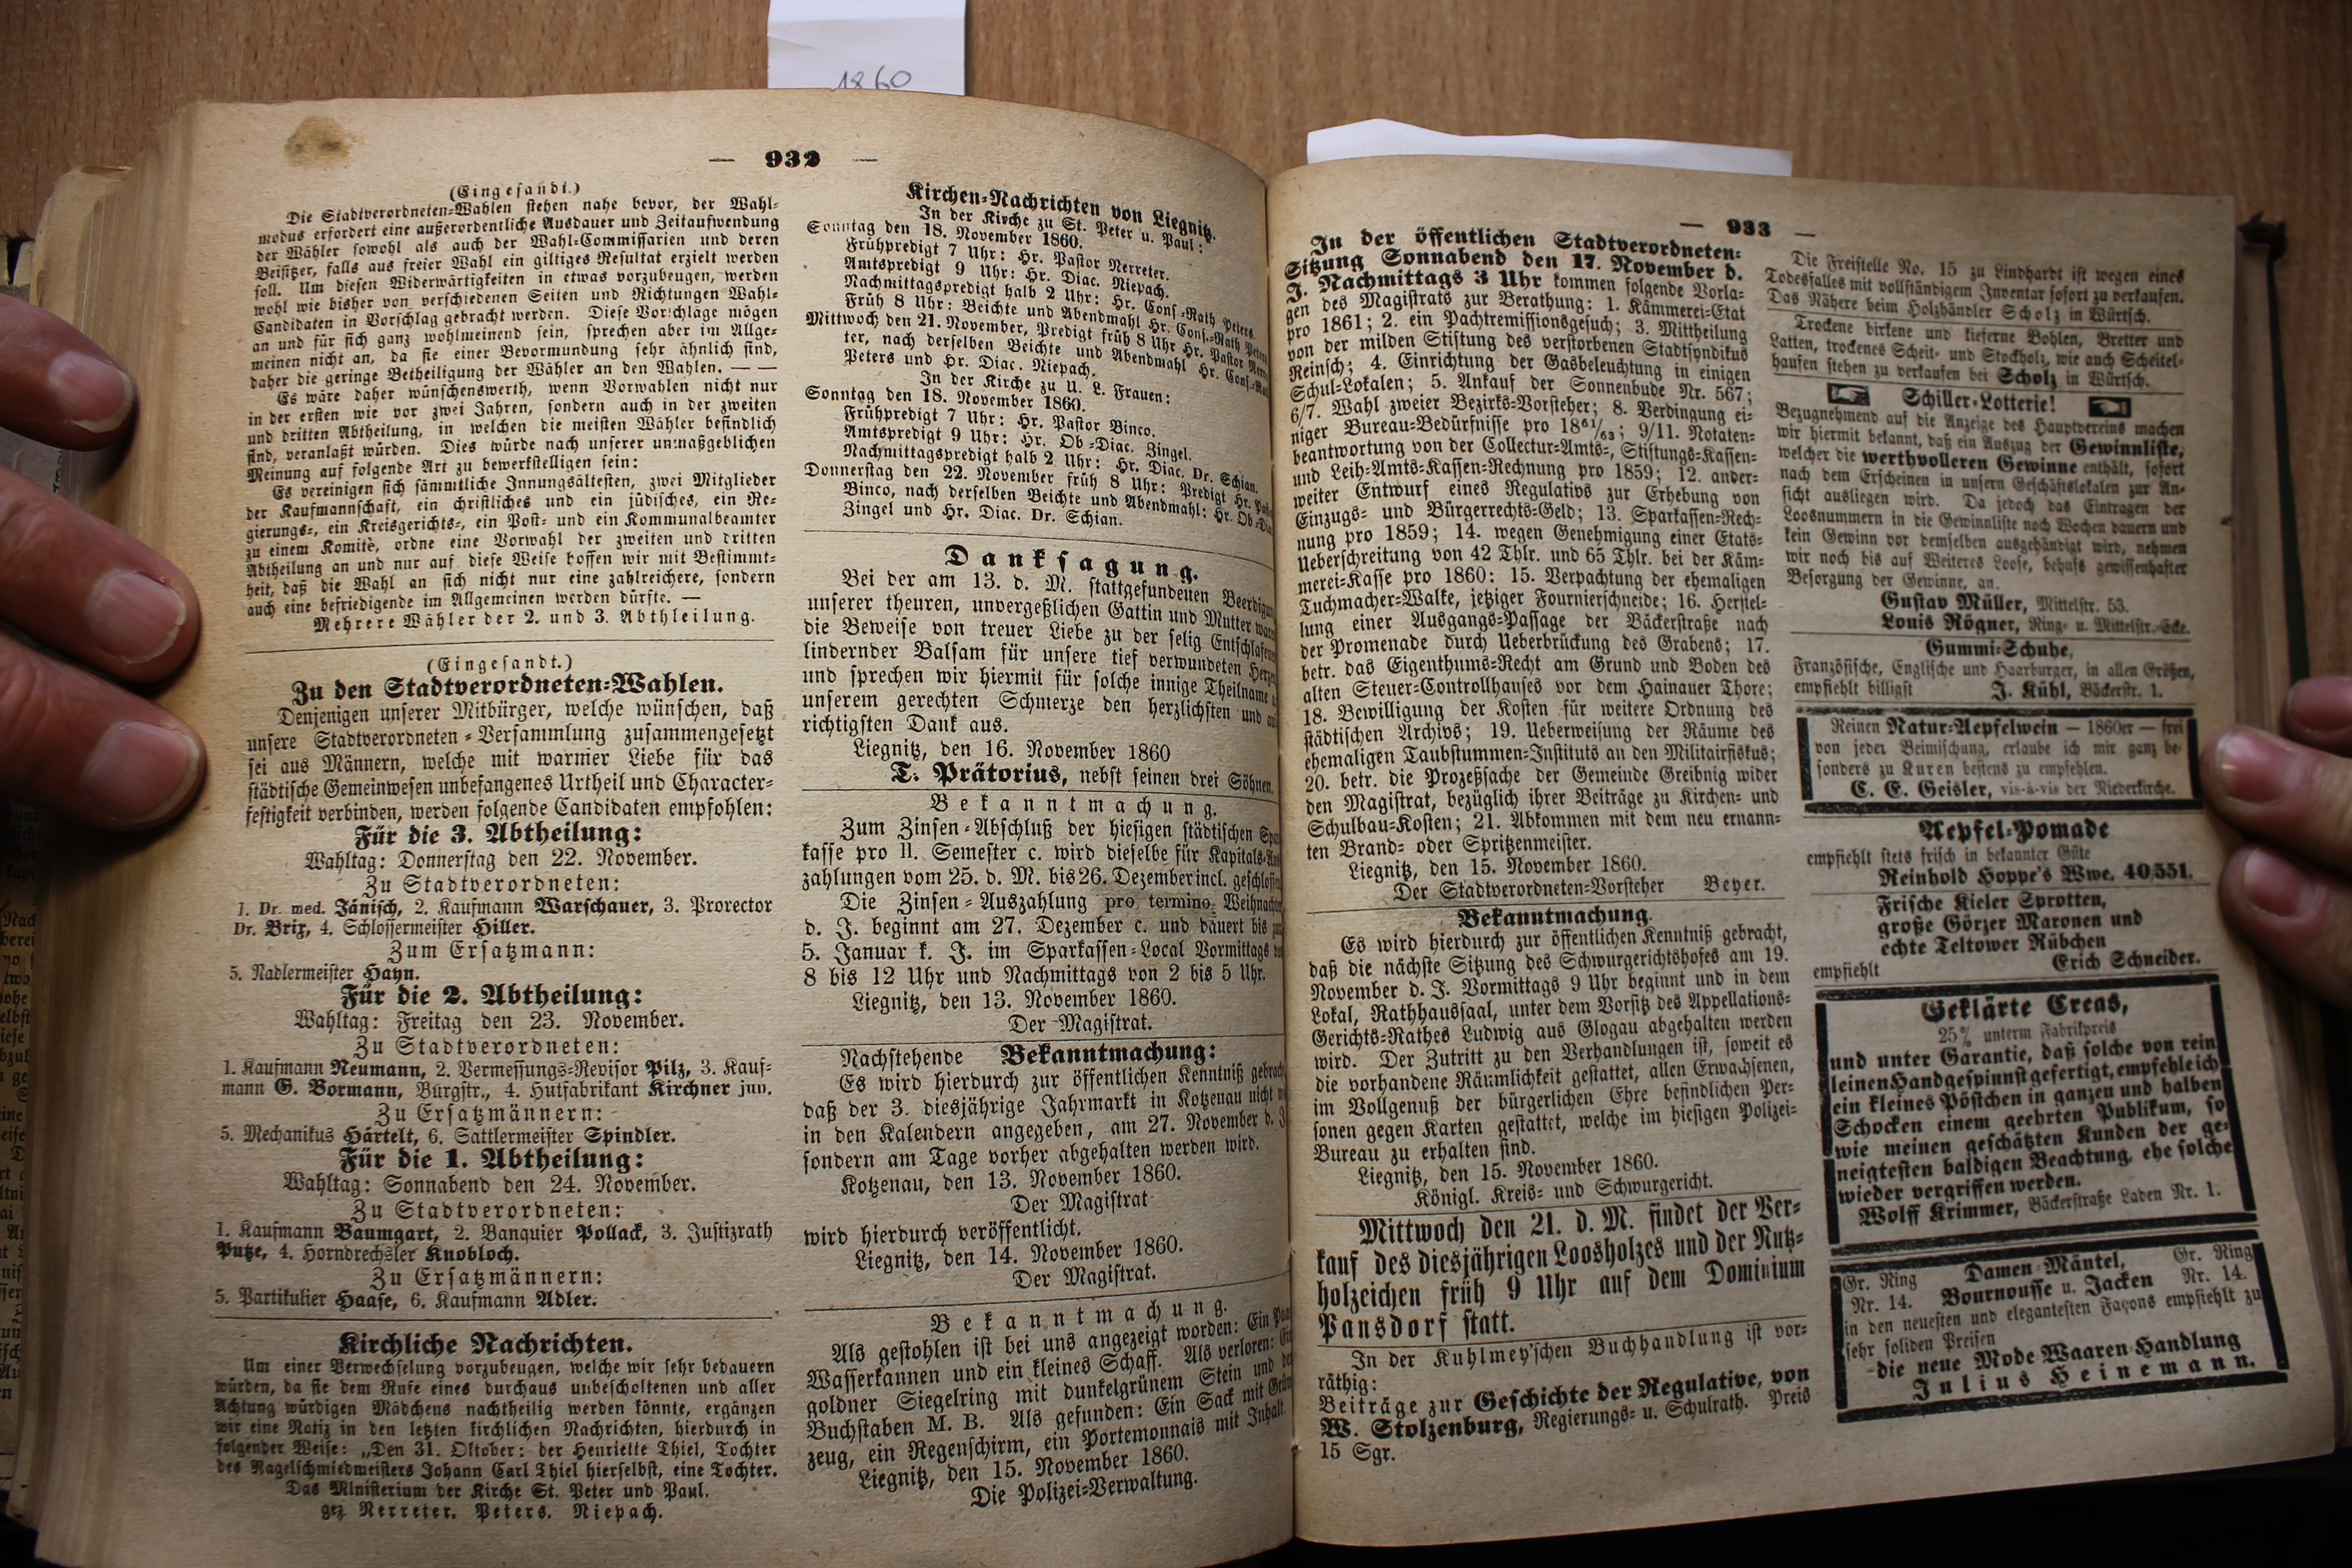 1860
— 932 —
(Eingesandt.)
Die Stadtverordneten-Wahlen stehen nahe bevor, der Wahl-
modus erfordert eine außerordentliche Ausdauer und Zeitaufwendung
der Wähler sowohl als auch der Wahl-Commissarien und deren
Beisitzer, falls aus freier Wahl ein giltiges Resultat erzielt werden
soll. Um diesen Widerwärtigkeiten in etwas vorzubeugen, werden
wohl wie bisher von verschiedenen Seiten und Richtungen Wahl-
Candidaten in Vorschlag gebracht werden. Diese Vorschläge mögen
an und für sich ganz wohlmeinend sein, sprechen aber im Allge-
meinen nicht an, da sie einer Bevormundung sehr ähnlich sind,
daher die geringe Betheiligung der Wähler an den Wahlen. — —
Es wäre daher wünschenswerth, wenn Vorwahlen nicht nur
in der ersten wie vor zwei Jahren, sondern auch in der zweiten
und dritten Abtheilung, in welchen die meisten Wähler befindlich
sind, veranlaßt würden. Dies würde nach unserer unmaßgeblichen
Meinung auf folgende Art zu bewerkstelligen sein:
Es vereinigen sich sämmtliche Innungsältesten, zwei Mitglieder
der Kaufmannschaft, ein christliches und ein jüdisches, ein Re-
gierungs-, ein Kreisgerichts-, ein Post- und ein Kommunalbeamter
zu einem Komitè, ordne eine Vorwahl der zweiten und dritten
Abtheilung an und nur auf diese Weise hoffen wir mit Bestimmt-
heit, daß die Wahl an sich nicht nur eine zahlreichere, sondern
auch eine befriedigende im Allgemeinen werden dürfte. —
Mehrere Wähler der 2. und 3. Abthleilung.
(Eingesandt.)
Zu den Stadtverordneten-Wahlen.
Denjenigen unserer Mitbürger, welche wünschen, daß
unsere Stadtverordneten-Versammlung zusammengesetzt
sei aus Männern, welche mit warmer Liebe für das
städtische Gemeinwesen unbefangenes Urtheil und Character-
festigkeit verbinden, werden folgende Candidaten empfohlen:
Für die 3. Abtheilung:
Wahltag: Donnerstag den 22. November.
Zu Stadtverordneten:
1. Dr. med. Jänisch, 2. Kaufmann Warschauer, 3. Prorector
Dr. Brix, 4. Schlossermeister Hiller.
Zum Ersatzmann:
5. Nadlermeister Hayn.
Für die 2. Abtheilung:
Wahltag: Freitag den 23. November.
Zu Stadtverordneten:
1. Kaufmann Neumann, 2. Vermessungs-Revisor Pilz, 3. Kauf-
mann G. Bormann, Burgstr., 4. Hutfabrikant Kirchner jun.
Zu Ersatzmännern:
5. Mechanikus Härtelt, 6. Sattlermeister Spindler.
Für die 1. Abtheilung:
Wahltag: Sonnabend den 24. November.
Zu Stadtverordneten:
1. Kaufmann Baumgart, 2. Banquier Pollack, 3. Justizrath
Putze, 4. Horndrechsler Knobloch.
Zu Ersatzmännern:
5. Partikulier Haase, 6. Kaufmann Adler.
Kirchliche Nachrichten.
Um einer Verwechselung vorzubeugen, welche wir sehr bedauern
würden, da sie dem Rufe eines durchaus unbescholtenen und aller
Achtung würdigen Mädchens nachtheilig werden könnte, ergänzen
wir eine Notiz in den letzten kirchlichen Nachrichten, hierdurch in
folgender Weise: „Den 31. Oktober: der Henriette Thiel, Tochter
des Nagelschmiedmeisters Johann Carl Thiel hierselbst, eine Tochter.
Das Ministerium der Kirche St. Peter und Paul.
gez. Nerreter. Peters. Niepach.
Kirchen-Nachrichten von Liegnitz.
In der Kirche zu St. Peter u. Paul:
Sonntag den 18. November 1860.
Frühpredigt 7 Uhr: Hr. Pastor Nerreter.
Amtspredigt 9 Uhr: Hr. Diac. Niepach.
Nachmittagspredigt halb 2 Uhr: Hr. Cons.-Rath Peters.
Früh 8 Uhr: Beichte und Abendmahl Hr. Cons.-Rath
Mittwoch den 21. November, Predigt früh 8 Uhr Hr. Pastor
ter, nach derselben Beichte und Abendmahl Hr.
Peters und Hr. Diac. Niepach.
In der Kirche zu U. L. Frauen:
Sonntag den 18. November 1860.
Frühpredigt 7 Uhr: Hr. Pastor Binco.
Amtspredigt 9 Uhr: Hr. Ob.-Diac. Zingel.
Nachmittagspredigt halb 2 Uhr: Hr. Diac. Dr. Schian.
Donnerstag den 22. November früh 8 Uhr: Predigt Hr.
Binco, nach derselben Beichte und Abendmahl: Hr.
Zingel und Hr. Diac. Dr. Schian.
Danksagung.
Bei der am 13. d. M. stattgefundenen
unserer theuren, unvergeßlichen Gattin und Mutter
die Beweise von treuer Liebe zu der selig
lindernder Balsam für unsere tief verwundeten
und sprechen wir hiermit für solche innige Theilname
unserem gerechten Schmerze den herzlichsten und
richtigsten Dank aus.
Liegnitz, den 16. November 1860
T. Prätorius, nebst seinen drei Söhnen.
Bekanntmachung.
Zum Zinsen-Abschluß der hiesigen städtischen
kasse pro II. Semester c. wird dieselbe für
zahlungen vom 25. d. M. bis 26. Dezember incl.
Die Zinsen-Auszahlung pro termino
d. J. beginnt am 27. Dezember c. und dauert bis
5. Januar k. J. im Sparkassen-Local Vormittags
8 bis 12 Uhr und Nachmittags von 2 bis 5 Uhr.
Liegnitz, den 13. November 1860.
Der Magistrat.
Nachstehende Bekanntmachung:
Es wird hierdurch zur öffentlichen Kenntniß
daß der 3. diesjährige Jahrmarkt in Kotzenau nicht
in den Kalendern angegeben, am 27. November d.
sondern am Tage vorher abgehalten werden wird.
Kotzenau, den 13. November 1860.
Der Magistrat
wird hierdurch veröffentlicht.
Liegnitz, den 14. November 1860.
Der Magistrat.
Bekanntmachung.
Als gestohlen ist bei uns angezeigt worden: Ein
Wasserkannen und ein kleines Schaff. Als verloren:
goldner Siegelring mit dunkelgrünem Stein und
Buchstaben M. B. Als gefunden: Ein Sack mit
zeug, ein Regenschirm, ein Portemonnais mit Inhalt.
Liegnitz, den 15. November 1860.
Die Polizei-Verwaltung.
— 933 —
In der öffentlichen Stadtverordneten-
Sitzung Sonnabend den 17. November d.
J. Nachmittags 3 Uhr kommen folgende Vorla-
gen des Magistrats zur Berathung: 1. Kämmerei-Etat
pro 1861; 2. ein Pachtremissionsgesuch; 3. Mittheilung
von der milden Stiftung des verstorbenen Stadtsyndikus
Reinsch; 4. Einrichtung der Gasbeleuchtung in einigen
Schul-Lokalen; 5. Ankauf der Sonnenbude Nr. 567;
6/7. Wahl zweier Bezirks-Vorsteher; 8. Verdingung ei-
niger Bureau-Bedürfnisse pro 18⁶¹/₆₃; 9/11. Notaten-
beantwortung von der Collectur-Amts-, Stiftungs-Kassen-
und Leih-Amts-Kassen-Rechnung pro 1859; 12. ander-
weiter Entwurf eines Regulativs zur Erhebung von
Einzugs- und Bürgerrechts-Geld; 13. Sparkassen-Rech-
nung pro 1859; 14. wegen Genehmigung einer Etats-
Ueberschreitung von 42 Thlr. und 65 Thlr. bei der Käm-
merei-Kasse pro 1860: 15. Verpachtung der ehemaligen
Tuchmacher-Walke, jetziger Fournierschneide; 16. Herstel-
lung einer Ausgangs-Passage der Bäckerstraße nach
der Promenade durch Ueberbrückung des Grabens; 17.
betr. das Eigenthums-Recht am Grund und Boden des
alten Steuer-Controllhauses vor dem Hainauer Thore;
18. Bewilligung der Kosten für weitere Ordnung des
städtischen Archivs; 19. Ueberweisung der Räume des
ehemaligen Taubstummen-Instituts an den Militairfiskus;
20. betr. die Prozeßsache der Gemeinde Greibnig wider
den Magistrat, bezüglich ihrer Beiträge zu Kirchen- und
Schulbau-Kosten; 21. Abkommen mit dem neu ernann-
ten Brand- oder Spritzenmeister.
Liegnitz, den 15. November 1860.
Der Stadtverordneten-Vorsteher Beyer.
Bekanntmachung.
Es wird hierdurch zur öffentlichen Kenntniß gebracht,
daß die nächste Sitzung des Schwurgerichtshofes am 19.
November d. J. Vormittags 9 Uhr beginnt und in dem
Lokal, Rathhaussaal, unter dem Vorsitz des Appellations-
Gerichts-Rathes Ludwig aus Glogau abgehalten werden
wird. Der Zutritt zu den Verhandlungen ist, soweit es
die vorhandene Räumlichkeit gestattet, allen Erwachsenen,
im Vollgenuß der bürgerlichen Ehre befindlichen Per-
sonen gegen Karten gestattet, welche im hiesigen Polizei-
Bureau zu erhalten sind.
Liegnitz, den 15. November 1860.
Königl. Kreis- und Schwurgericht.
Mittwoch den 21. d. M. findet der Ver-
kauf des diesjährigen Loosholzes und der Nutz-
holzeichen früh 9 Uhr auf dem Dominium
Pansdorf statt.
In der Kuhlmey'schen Buchhandlung ist vor-
räthig:
Beiträge zur Geschichte der Regulative, von
W. Stolzenburg, Regierungs- u. Schulrath. Preis
15 Sgr.
Die Freistelle No. 15 zu Lindhardt ist wegen eines
Todesfalles mit vollständigem Inventar sofort zu verkaufen.
Das Nähere beim Holzhändler Scholz in Würtsch.
Trockene birkene und kieferne Bohlen, Bretter und
Latten, trockenes Scheit- und Stockholz, wie auch Scheitel-
haufen stehen zu verkaufen bei Scholz in Würtsch.
Schiller-Lotterie!
Bezugnehmend auf die Anzeige des Hauptvereins machen
wir hiermit bekannt, daß ein Auszug der Gewinnliste,
welcher die werthvolleren Gewinne enthält, sofort
nach dem Erscheinen in unsern Geschäftslokalen zur An-
sicht ausliegen wird. Da jedoch das Eintragen der
Loosnummern in die Gewinnliste noch Wochen dauern und
kein Gewinn vor demselben ausgehändigt wird, nehmen
wir noch bis auf Weiteres Loose, behufs gewissenhafter
Besorgung der Gewinne, an.
Gustav Müller, Mittelstr. 53.
Louis Rögner, Ring- u. Mittelstr.-Ecke.
Gummi-Schuhe,
Französische, Englische und Haarburger, in allen Größen,
empfiehlt billigst J. Kühl, Bäckerstr. 1.
Reinen Natur-Aepfelwein — 1860er — frei
von jeder Beimischung, erlaube ich mir ganz be-
sonders zu Kuren bestens zu empfehlen.
C. E. Geisler, vis-à-vis der Niederkirche.
Aepfel-Pomade
empfiehlt stets frisch in bekannter Güte
Reinhold Hoppe's Wwe. 40/551.
Frische Kieler Sprotten,
große Görzer Maronen und
echte Teltower Rübchen
empfiehlt Erich Schneider.
Geklärte Creas,
25% unterm Fabrikpreis
und unter Garantie, daß solche von rein
leinen Handgespinnst gefertigt, empfehle ich
ein kleines Pöstchen in ganzen und halben
Schocken einem geehrten Publikum, so
wie meinen geschätzten Kunden der ge-
neigtesten baldigen Beachtung, ehe solche
wieder vergriffen werden.
Wolff Krimmer, Bäckerstraße Laden Nr. 1.
Gr. Ring Damen-Mäntel, Gr. Ring
Nr. 14. Bournousse u. Jacken Nr. 14.
in den neuesten und elegantesten Façons empfiehlt zu
sehr soliden Preisen
die neue Mode-Waaren-Handlung
Julius Heinemann.